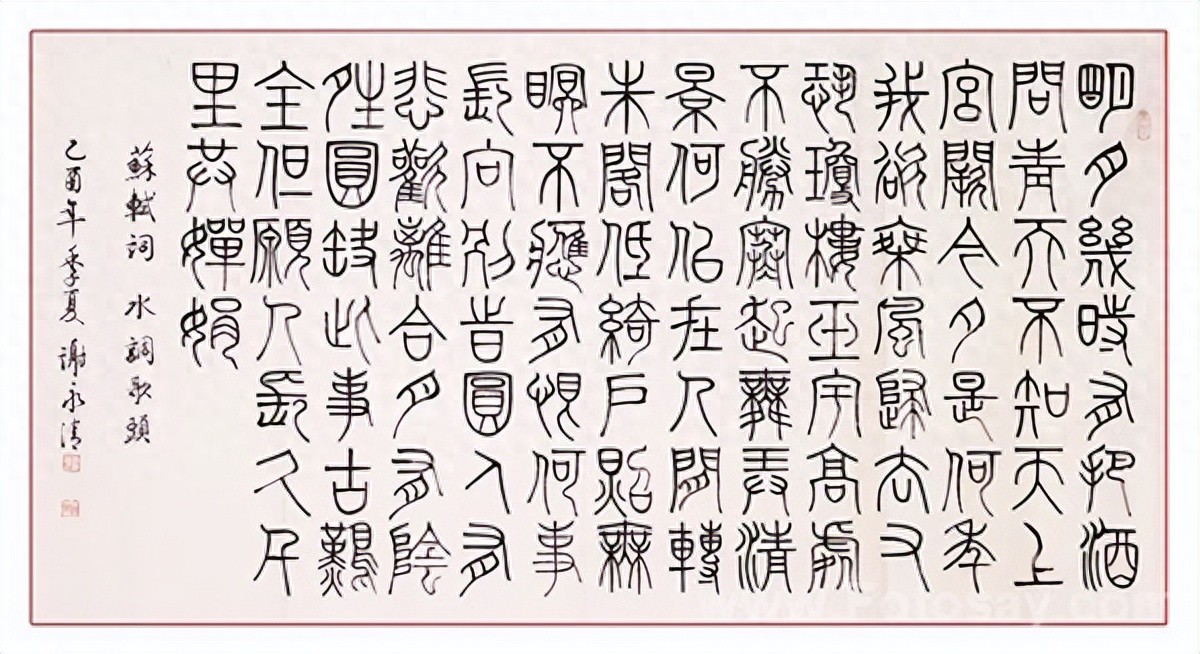 明月幾時有把酒
問青天不知天上
宮闕今夕是何年
我欲乘風歸去又
恐瓊樓玉宇高處
不勝寒起舞弄清
景何似在人間轉
朱閣低綺戶照無
眠不應有恨何事
長向別時圓人有
悲歡離合月有陰
晴圓缺此事古難
全但願人長久千
里共嬋娟
蘇軾詞 水調歌頭
乙酉年季夏 謝永清
www.Fotosay.com